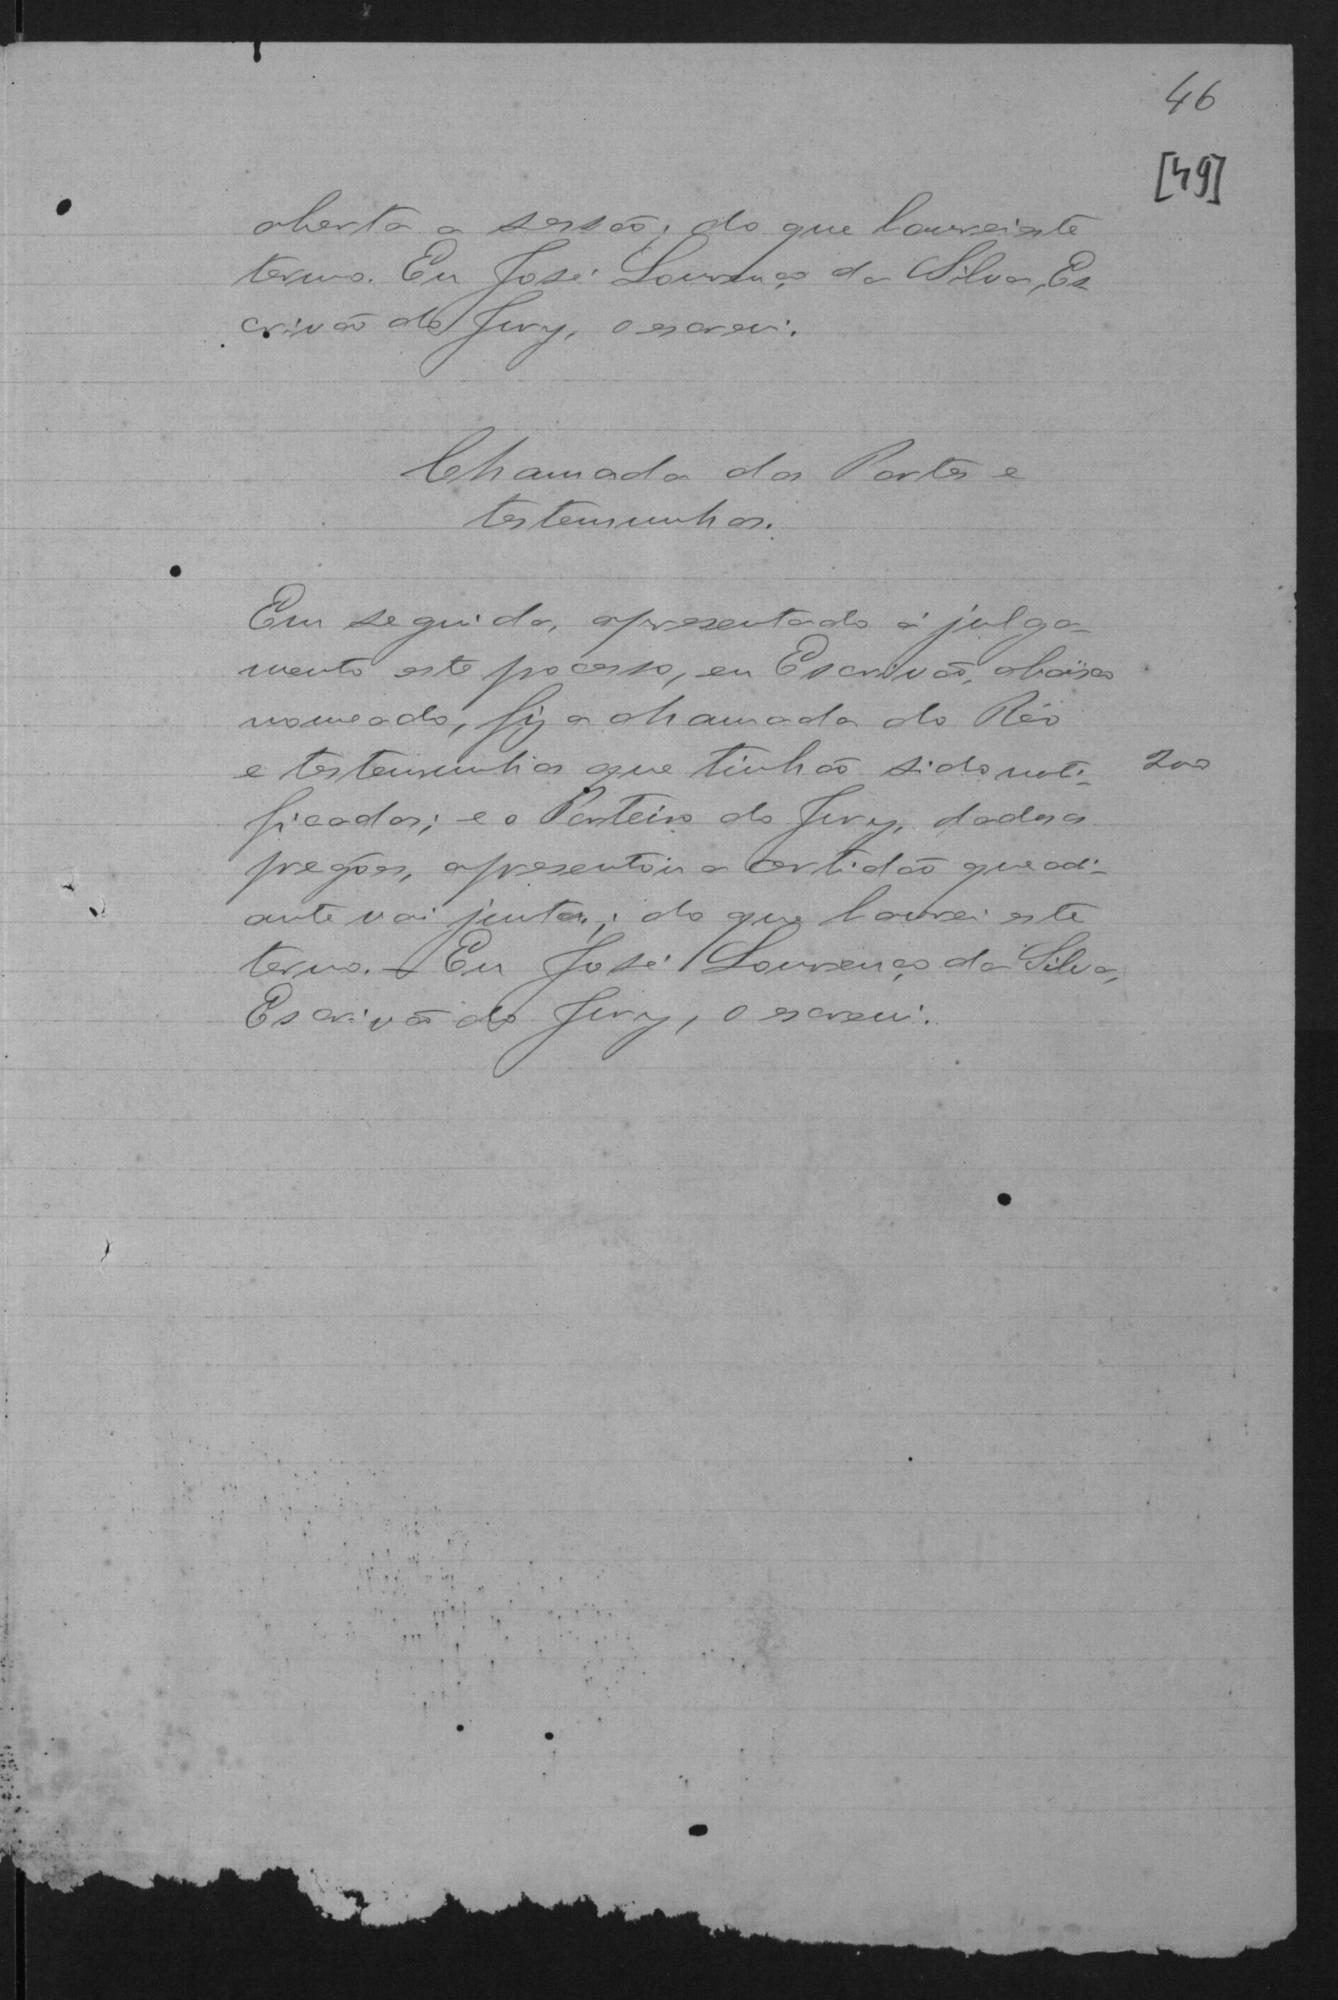 46
[49]
aberta a sessão; do que lavrei este
termo. Eu José Lourenço da Silva, Es
crivão do Jury, o escrevi.
Chamada das Partes e
testemunhas.
Em seguida, apresentado á julga-
mento este processo, eu Escrivão, abaixo
nomeado, fiz a chamada do Réo
e testemunhas que tinhão sido noti-
200
ficados; e o Porteiro do Jury, dados os
pregões, apresentou a certidão que adi-
ante vai junta; do que lavrei este
termo. - Eu José Lourenço da Silva,
Escrivão do Jury, o escrevi.